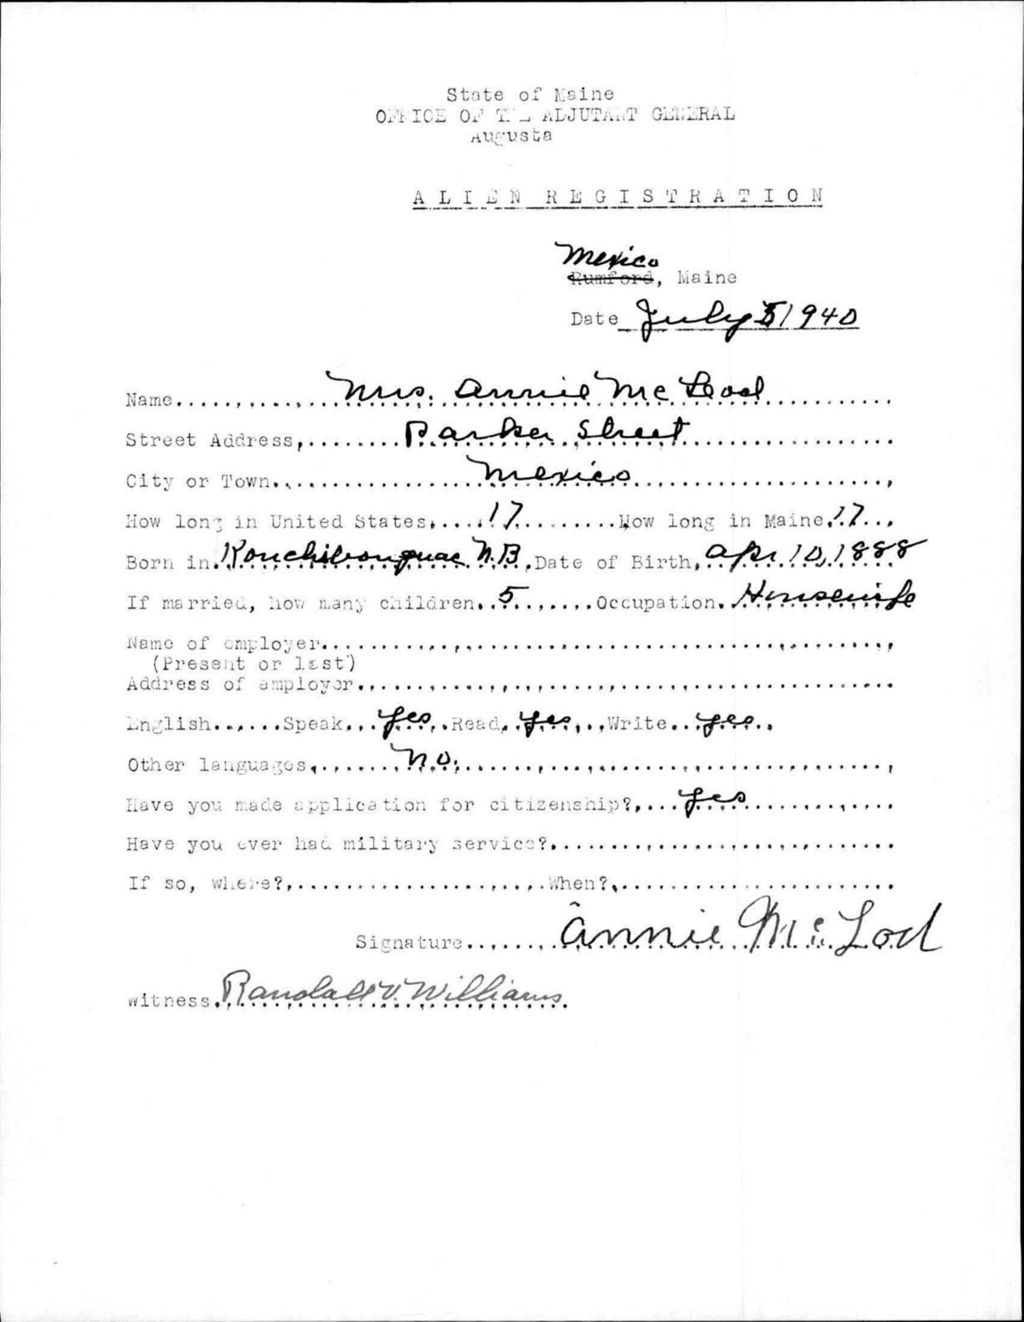 State of Maine
OFFICE OF THE ADJUTANT GENERAL
Augusta
ALIEN REGISTRATION
Mexico
Rumford, Maine
Date July 5 1940
Name Mrs. Annie McLeod
Street Address, Parker Street
City or Town Mexico
How long in United States 17 How long in Maine 17
Born in Kouchibouguac N.B. Date of Birth, Apr 10, 1888
If married, how many children 5 Occupation Housewife
Name of employer
(Present or last)
Address of employer
English Speak yes Read yes Write yes
Other languages No.
Have you made application for citizenship? yes
Have you ever had military service?
If so, where? When?
Signature Annie McLod
witness Randall V Williams